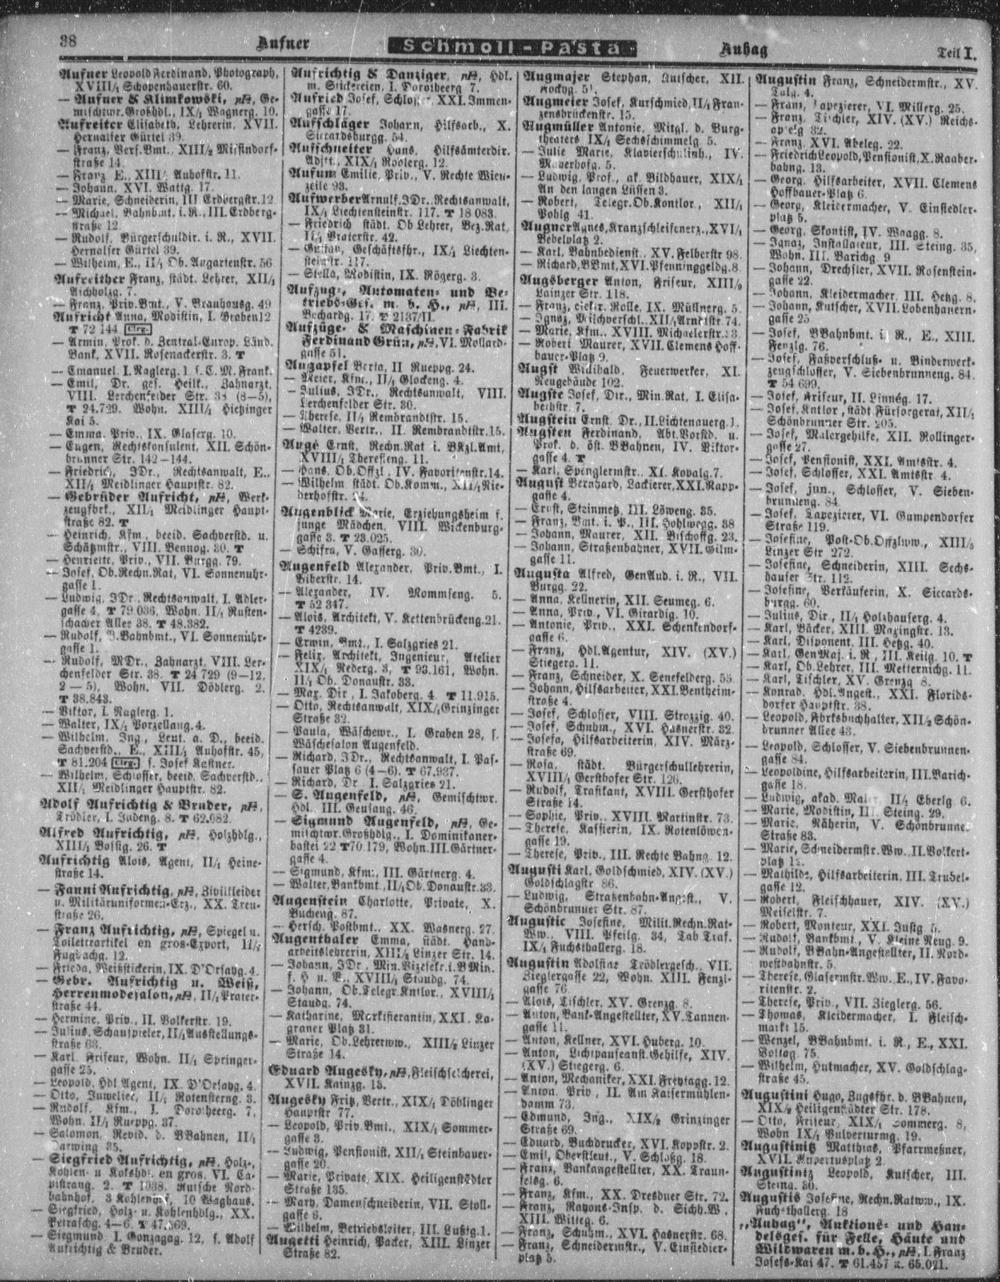 38
Aufner
Schmoll-Pasta
Aubag
Teil I.
Aufner Leopold Ferdinand, Photograph,
XVIII/1 Schopenhauerstr. 60.
— Aufner & Klimkowski, pH, Ge-
mischtwr.Großhdl., IX/4 Wagnerg. 10.
Aufreiter Elisabeth, Lehrerin, XVII.
Hernalser Gürtel 39.
— Franz, Vers.Bmt., XIII/2 Missindorf-
straße 14.
— Franz E., XIII/ Auhofstr. 11.
— Johann, XVI. Wattg. 17.
— Marie, Schneiderin, III. Erdbergstr.12
— Michael, Bahnbmt. i. R., III. Erdberg-
straße 12.
— Rudolf, Bürgerschuldir. i. R., XVII.
Hernalser Gürtel 39.
— Wilhelm, E., II/1 Ob. Augartenstr. 56
Aufreither Franz, städt. Lehrer, XII/1
Aichholzg. 7.
— Franz, Priv.Bmt., V. Brauhausg. 49
Aufricht Anna, Modistin, I. Graben12
T 72 144 Clrg.
— Armin, Prok. d. Zentral-Europ. Länd.
Bank, XVII. Rosenackerstr. 3. T
— Emanuel, I. Naglerg. 1 f. C. M. Frank.
— Emil, Dr. ges. Heilk., Zahnarzt,
VIII. Lerchenfelder Str. 38 (8—5),
T 24.729. Wohn. XIII/1 Hietzinger
Kai 5.
— Emma, Priv., IX. Glaserg. 10.
— Eugen, Rechtskonsulent, XII. Schön-
brunner Str. 142—144.
— Friedrich, JDr., Rechtsanwalt, E.,
XII/1 Meidlinger Hauptstr. 82.
— Gebrüder Aufricht, pH, Werk-
zeugfbrk., XII/1 Meidlinger Haupt-
straße 82. T
— Heinrich, Kfm., beeid. Sachverst. u.
Schätzmstr., VIII. Bennog. 30. T
— Henriette, Priv., VII. Burgg. 79.
— Josef, Ob.Rechn.Rat, VI. Sonnenuhr-
gasse 1.
— Ludwig, JDr., Rechtsanwalt, I. Adler-
gasse 4, T 79 036, Wohn. II/1 Rusten-
schacher Allee 38. T 48.382.
— Rudolf, B.Bahnbmt., VI. Sonnenuhr-
gasse 1.
— Rudolf, MDr., Zahnarzt, VIII. Ler-
chenfelder Str. 38. T 24 729 (9—12,
2—5), Wohn. VII. Döblerg. 2.
T 38.843.
— Viktor, I. Naglerg. 1.
— Walter, IX/1 Porzellang. 4.
— Wilhelm, Ing., Leut. a. D., beeid.
Sachverstd., E., XIII/1 Auhofstr. 45,
T 81.204 Clrg. f. Josef Kastner.
— Wilhelm, Schlosser, beeid. Sachverstd.,
XII/1 Meidlinger Hauptstr. 82.
Adolf Aufrichtig & Bruder, pH,
Trödler, I. Judeng. 8. T 62.082.
Alfred Aufrichtig, pH, Holzhdlg.,
XIII/1 Bossig. 26. T
Aufrichtig Alois, Agent, II/1 Heine-
straße 14.
— Fanni Aufrichtig, pH, Zivilkleider
u. Militäruniformen-Erz., XX. Treu-
straße 26.
— Franz Aufrichtig, pH, Spiegel u.
Toiletteartikel en gros-Export, II/2
Fugbachg. 12.
— Frieda, Weißstickerin, IX. D'Orsayg. 4.
— Gebr. Aufrichtig u. Weiß,
Herrenmodesalon, pH, II/1 Prater-
straße 44.
— Hermine, Priv., II. Volkertstr. 19.
— Julius, Schauspieler, II/1 Ausstellungs-
straße 63.
— Karl, Friseur, Wohn. II/1 Springer-
gasse 25.
— Leopold, Hdl.Agent, IX. D'Orsayg. 4.
— Otto, Juwelier, II/1 Rotensterng. 3.
— Rudolf, Kfm., I. Dorotheerg. 7,
Wohn. II/1 Rueppg. 37.
— Salomon, Revid. d. BBahnen, II/1
Darwing. 35.
— Siegfried Aufrichtig, pH, Holz-,
Kohlen- u. Kokshdl. en gros, VI. Ca-
pistrang. 2. T 1038, Rutsche Nord-
bahnhof, 3 Kohlenhof, 10 Waghaus.
— Siegfried, Holz- u. Kohlenhdlg., XX.
Petraschg. 4—6. T 47.369.
— Siegmund, I. Gonzagag. 12, f. Adolf
Aufrichtig & Bruder.
Aufrichtig & Danziger, pH, Hdl.
m. Stickereien, I. Dorotheerg 7.
Aufried Josef, Schloss., XXI. Immen-
gasse 17.
Aufschläger Johann, Hilfsarb., X.
Siccardsburgg. 54.
Aufschneiter Hans, Hilfsämterdir.
Adjst., XIX/1 Rooserg. 12.
Aufum Emilie, Priv., V. Rechte Wien-
zeile 93.
Aufwerber Arnulf, JDr., Rechtsanwalt,
IX/1 Liechtensteinstr. 117. T 18 083.
— Friedrich, städt. Ob. Lehrer, Bez.Rat,
II/1 Praterstr. 42.
— Gustav, Geschäftsfhr., IX/1 Liechten-
steinstr. 117.
— Stella, Modistin, IX. Rögerg. 3.
Aufzug-, Automaten- und Be-
triebs-Ges. m. b. H., pH, III.
Bechardg. 17. T 2137/II.
Aufzüge- & Maschinen-Fabrik
Ferdinand Grün, pH, VI. Mollard-
gasse 51.
Augapfel Berta, II. Rueppg. 24.
— Meier, Kfm., II/1 Glockeng. 4.
— Julius, JDr., Rechtsanwalt, VIII.
Lerchenfelder Str. 30.
— Therese, II/1 Rembrandtstr. 15.
— Walter, Vertr., II. Rembrandtstr. 15.
Augé Ernst, Rechn.Rat i. BKzl.Amt,
XVIII/1 Thereseng. 11.
— Hans, Ob.Offzl., IV. Favoritenstr.14.
— Wilhelm, städt. Ob.Komm., XII/1Nie-
derhofstr. 24.
Augenblick Marie, Erziehungsheim f.
junge Mädchen, VIII. Wickenburg-
gasse 3. T 23.025.
— Schifra, V. Gasserg. 30.
Augenfeld Alexander, Priv.Bmt., I.
Biberstr. 14.
— Alexander, IV. Mommseng. 5.
T 52 347.
— Alois, Architekt, V. Kettenbrückeng.21.
T 4239.
— Erwin, Bmt., I. Salzgries 21.
— Felix, Architekt, Ingenieur, Atelier
XIX/1 Rederg. 3, T 93.161, Wohn.
II/1 Ob. Donaustr. 33.
— Max, Dir., I. Jakoberg. 4. T 11.915.
— Otto, Rechtsanwalt, XIX/1Grinzinger
Straße 32.
— Paula, Wäschewr., I. Graben 28, f.
Wäschesalon Augenfeld.
— Richard, JDr., Rechtsanwalt, I. Pas-
sauer Platz 6 (4—6). T 67.937.
— Richard, Dr., I. Salzgries 21.
— S. Augenfeld, pH, Gemischtwr.
Hdl., III. Geusaug. 46.
— Sigmund Augenfeld, pH, Ge-
mischtwr.Großhdlg., I. Dominikaner-
bastei 22 T70.179, Wohn.III. Gärtner-
gasse 4.
— Sigmund, Kfm., III. Gärtnerg. 4.
— Walter, Bankbmt., II/1Ob. Donaustr.33.
Augenstein Charlotte, Private, X.
Bucheng. 87.
— Hersch, Postbmt., XX. Wasnerg. 27.
Augenthaler Emma, städt. Hand-
arbeitslehrerin, XIII/1 Linzer Str. 14.
— Johann, JDr., Min.Vizesekr.i.BMin.
f. H. u. V., XVIII/1 Staudg. 74.
— Johann, Ob.Telegr.Kntlor., XVIII/1
Staudg. 74.
— Katharine, Markisierantin, XXI. Ka-
graner Platz 31.
— Marie, Ob.Lehrerww., XIII/2 Linzer
Straße 14.
Eduard Augesky, pH, Fleischselcherei,
XVII. Kainzg. 13.
Augesky Fritz, Vertr., XIX/1 Döblinger
Hauptstr 77.
— Leopold, Priv.Bmt., XIX/1 Sommer-
gasse 3.
— Ludwig, Pensionist, XII/1 Steinbauer-
gasse 20.
— Marie, Private, XIX. Heiligenstädter
Straße 135.
— Mary, Damenschneiderin, VII. Stoll-
gasse 6.
— Wilhelm, Betriebsleiter, III. Lustig.1.
Augetti Heinrich, Packer, XIII. Linzer
Straße 82.
Augmajer Stephan, Kutscher, XII.
Hockyg. 51.
Augmeier Josef, Kurschmied, II/1 Fran-
zensbrückenstr. 15.
Augmüller Antonie, Mitgl. d. Burg-
theaters, IX/2 Sechsschimmelg. 5.
— Julie Marie, Klavierschulinh., IV.
Mayerhofg. 5.
— Ludwig, Prof., ak. Bildhauer, XIX/1
An den langen Lüssen 3.
— Robert, Telegr.Ob.Kontlor., XII/1
Pohlg. 41.
Augner Agnes, Kranzschleifenerz., XVI/1
Bebelplatz 2.
— Karl, Bahnbedienst., XV. Felberstr. 98.
— Richard, BBmt, XVI. Pfenninggeldg.8.
Augsberger Anton, Friseur, XIII/2
Lainzer Str. 118.
— Franz, elektr. Rolle, IX. Müllnerg. 5.
— Ignaz, Milchverschl., XII/1Arndtstr. 74.
— Marie, Kfm., XVIII. Michaelerstr. 3.
— Robert Maurer, XVII. Clemens Hoff-
bauer-Platz 9.
Augst Wilibald, Feuerwerker, XI.
Neugebäude 102.
Auguste Josef, Dir., Min.Rat, I. Elisa-
bethstr. 7.
Augstein Ernst, Dr., II. Lichtenauerg. 1.
Augsten Ferdinand, Abt.Vorstd. u.
Prok. d. öst. BBahnen, IV. Viktor-
gasse 4. T
— Karl, Spenglermstr., XI. Kobalg. 7.
August Bernhard, Lackierer, XXI. Rapp-
gasse 4.
— Ernst, Steinmetz, III. Löweng. 35.
— Franz, Bmt. i. P., III. Hohlwegg. 38
— Johann, Maurer, XII. Bischoffg. 23.
— Johann, Straßenbahner, XVII. Gilm-
gasse 11.
Augusta Alfred, GenAud. i. R., VII.
Burgg. 22.
— Anna, Kellnerin, XII. Seumeg. 6.
— Anna, Priv., VI. Girardig. 10.
— Antonie, Priv., XXI. Schenkendorf-
gasse 6.
— Franz, Hdl.Agentur, XIV. (XV.)
Stiegerg. 11.
— Franz, Schneider, X. Senefelderg. 55.
— Johann, Hilfsarbeiter, XXI. Bentheim-
straße 4.
— Josef, Schlosser, VIII. Strozzig. 40.
— Josef, Schuhm., XVI. Hasnerstr. 32.
— Josefa, Hilfsarbeiterin, XIV. März-
straße 69.
— Rosa, städt. Bürgerschullehrerin,
XVIII/1 Gersthofer Str. 126.
— Rudolf, Trafikant, XVIII. Gersthofer
Straße 14.
— Sophie, Priv., XVIII. Martinstr. 73.
— Therese, Kassierin, IX. Rotenlöwen-
gasse 19.
— Therese, Priv., III. Rechte Bahng. 12.
Augusti Karl, Goldschmied, XIV. (XV.)
Goldschlagstr 86.
— Ludwig, Straßenbahn-Angest., V.
Schönbrunner Str. 87.
Augustic Josefine, Milit.Rechn.Rat-
Ww., VIII. Pfeilg. 34, Tab.Traf.
IX/1 Fuchsthallerg. 18.
Augustin Adolfine, Trödlergesch., VII.
Zieglergasse 22, Wohn. XIII. Fenzl-
gasse 76.
— Alois, Tischler, XV. Grenzg. 8.
— Anton, Bank-Angestellter, XV.Tannen-
gasse 11.
— Anton, Kellner, XVI. Huberg. 10.
— Anton, Lichtpauseanst.Gehilfe, XIV.
(XV.) Stiegerg. 6.
— Anton, Mechaniker, XXI. Freytagg. 12.
— Anton, Priv., II. Am Kaisermühlen-
damm 73.
— Edmund, Ing., XIX/2 Grinzinger
Straße 69.
— Eduard, Buchdrucker, XVI. Koppstr. 2.
— Emil, Oberstleut., V. Schloßg. 18.
— Franz, Bankangestellter, XX. Traun-
felsg. 6.
— Franz, Kfm., XX. Dresdner Str. 72.
— Franz, Rayons-Insp. d. Sichh.W.,
XIII. Witteg. 6.
— Franz, Schuhm., XVI. Hasnerstr. 68.
— Franz, Schneidermstr., V. Einsiedler-
platz 5.
Augustin Franz, Schneidermstr., XV.
Talg. 4.
— Franz, Tapezierer, VI. Millerg. 25.
— Franz, Tischler, XIV. (XV.) Reichs-
apfelg 32.
— Franz, XVI. Abeleg. 22.
— Friedrich Leopold, Pensionist, X. Raaber-
bahng. 13.
— Georg, Hilfsarbeiter, XVII. Clemens
Hoffbauer-Platz 6.
— Georg, Kleidermacher, V. Einsiedler-
platz 5.
— Georg, Skontist, IV. Waagg. 8.
— Ignaz, Installateur, III. Steing. 35,
Wohn. III. Barichg. 9
— Johann, Drechsler, XVII. Rosenstein-
gasse 22.
— Johann, Kleidermacher, III. Hetzg. 8.
— Johann, Kutscher, XVII. Lobenhauern-
gasse 25
— Josef, BBahnbmt. i. R., E., XIII.
Fenzlg. 76.
— Josef, Faßverschluß- u. Binderwerk-
zeugschlosser, V. Siebenbrunneng. 84.
T 54 699.
— Josef, Friseur, II. Linnég. 17.
— Josef, Kntlor., städt. Fürsorgerat, XII/1
Schönbrunner Str. 205.
— Josef, Malergehilfe, XII. Rollinger-
gasse 27.
— Josef, Pensionist, XXI. Amtsstr. 4.
— Josef, Schlosser, XXI. Amtsstr. 4.
— Josef, jun., Schlosser, V. Sieben-
brunneng. 84.
— Josef, Tapezierer, VI. Gumpendorfer
Straße 119.
— Josefine, Post-Ob.Offzlww., XIII/3
Linzer Str. 272.
— Josefine, Schneiderin, XIII. Sechs-
hauser Str. 112.
— Josefine, Verkäuferin, X. Siccards-
burgg. 60.
— Julius, Dir., II/1 Holzhauserg. 4.
— Karl, Bäcker, XIII. Matzingstr. 13.
— Karl, Disponent, III. Hetzg. 40.
— Karl, GenMaj. i. R., III. Keilg. 10. T
— Karl, Ob.Lehrer, III. Metternichg. 11.
— Karl, Tischler, XV. Grenzg. 8.
— Konrad, Hdl.Angest., XXI. Florids-
dorfer Hauptstr. 38.
— Leopold, Fbrksbuchhalter, XII/2 Schön-
brunner Allee 43.
— Leopold, Schlosser, V. Siebenbrunnen-
gasse 84.
— Leopoldine, Hilfsarbeiterin, III. Barich-
gasse 18.
— Ludwig, akad. Maler, II/1 Eberlg. 6.
— Marie, Modistin, III. Steing. 29.
— Marie, Näherin, V. Schönbrunner
Straße 83.
— Marie, Schneidermstr.Ww., II. Volkert-
platz 12.
— Mathilde, Hilfsarbeiterin, III. Trubel-
gasse 12.
— Robert, Fleischhauer, XIV. (XV.)
Meiselstr. 7.
— Robert, Monteur, XXI. Justg. 5.
— Rudolf, Bankbmt., V. Kleine Neug. 9.
— Rudolf, BBahn-Angestellter, II. Nord-
westbahnstr. 5.
— Therese, Glasermstr.Ww., E., IV. Favo-
ritenstr. 2.
— Therese, Priv., VII. Zieglerg. 56.
— Thomas, Kleidermacher, I. Fleisch-
markt 15.
— Wenzel, BBahnbmt. i. R., E., XXI.
Voltag. 75.
— Wilhelm, Hutmacher, XV. Goldschlag-
straße 45.
Augustini Hugo, Zugsfhr. d. BBahnen,
XIX/2 Heiligenstädter Str. 178.
— Otto, Friseur, XIX/1 Sommerg. 8,
Wohn IX/1 Pulverturmg. 19.
Augustinitz Matthias, Pfarrmeßner,
XVII. Rupertusplatz 2.
Augustintz Leopold, Kutscher, III.
Steing. 30.
Augustis Josefine, Rechn.Ratww., IX.
Fuchsthallerg. 18
„Aubag", Auktions- und Han-
delsges. für Felle, Häute und
Wildwaren m. b. H., pH, I. Franz
Josefs-Kai 47. T 61.457 u. 65.021.